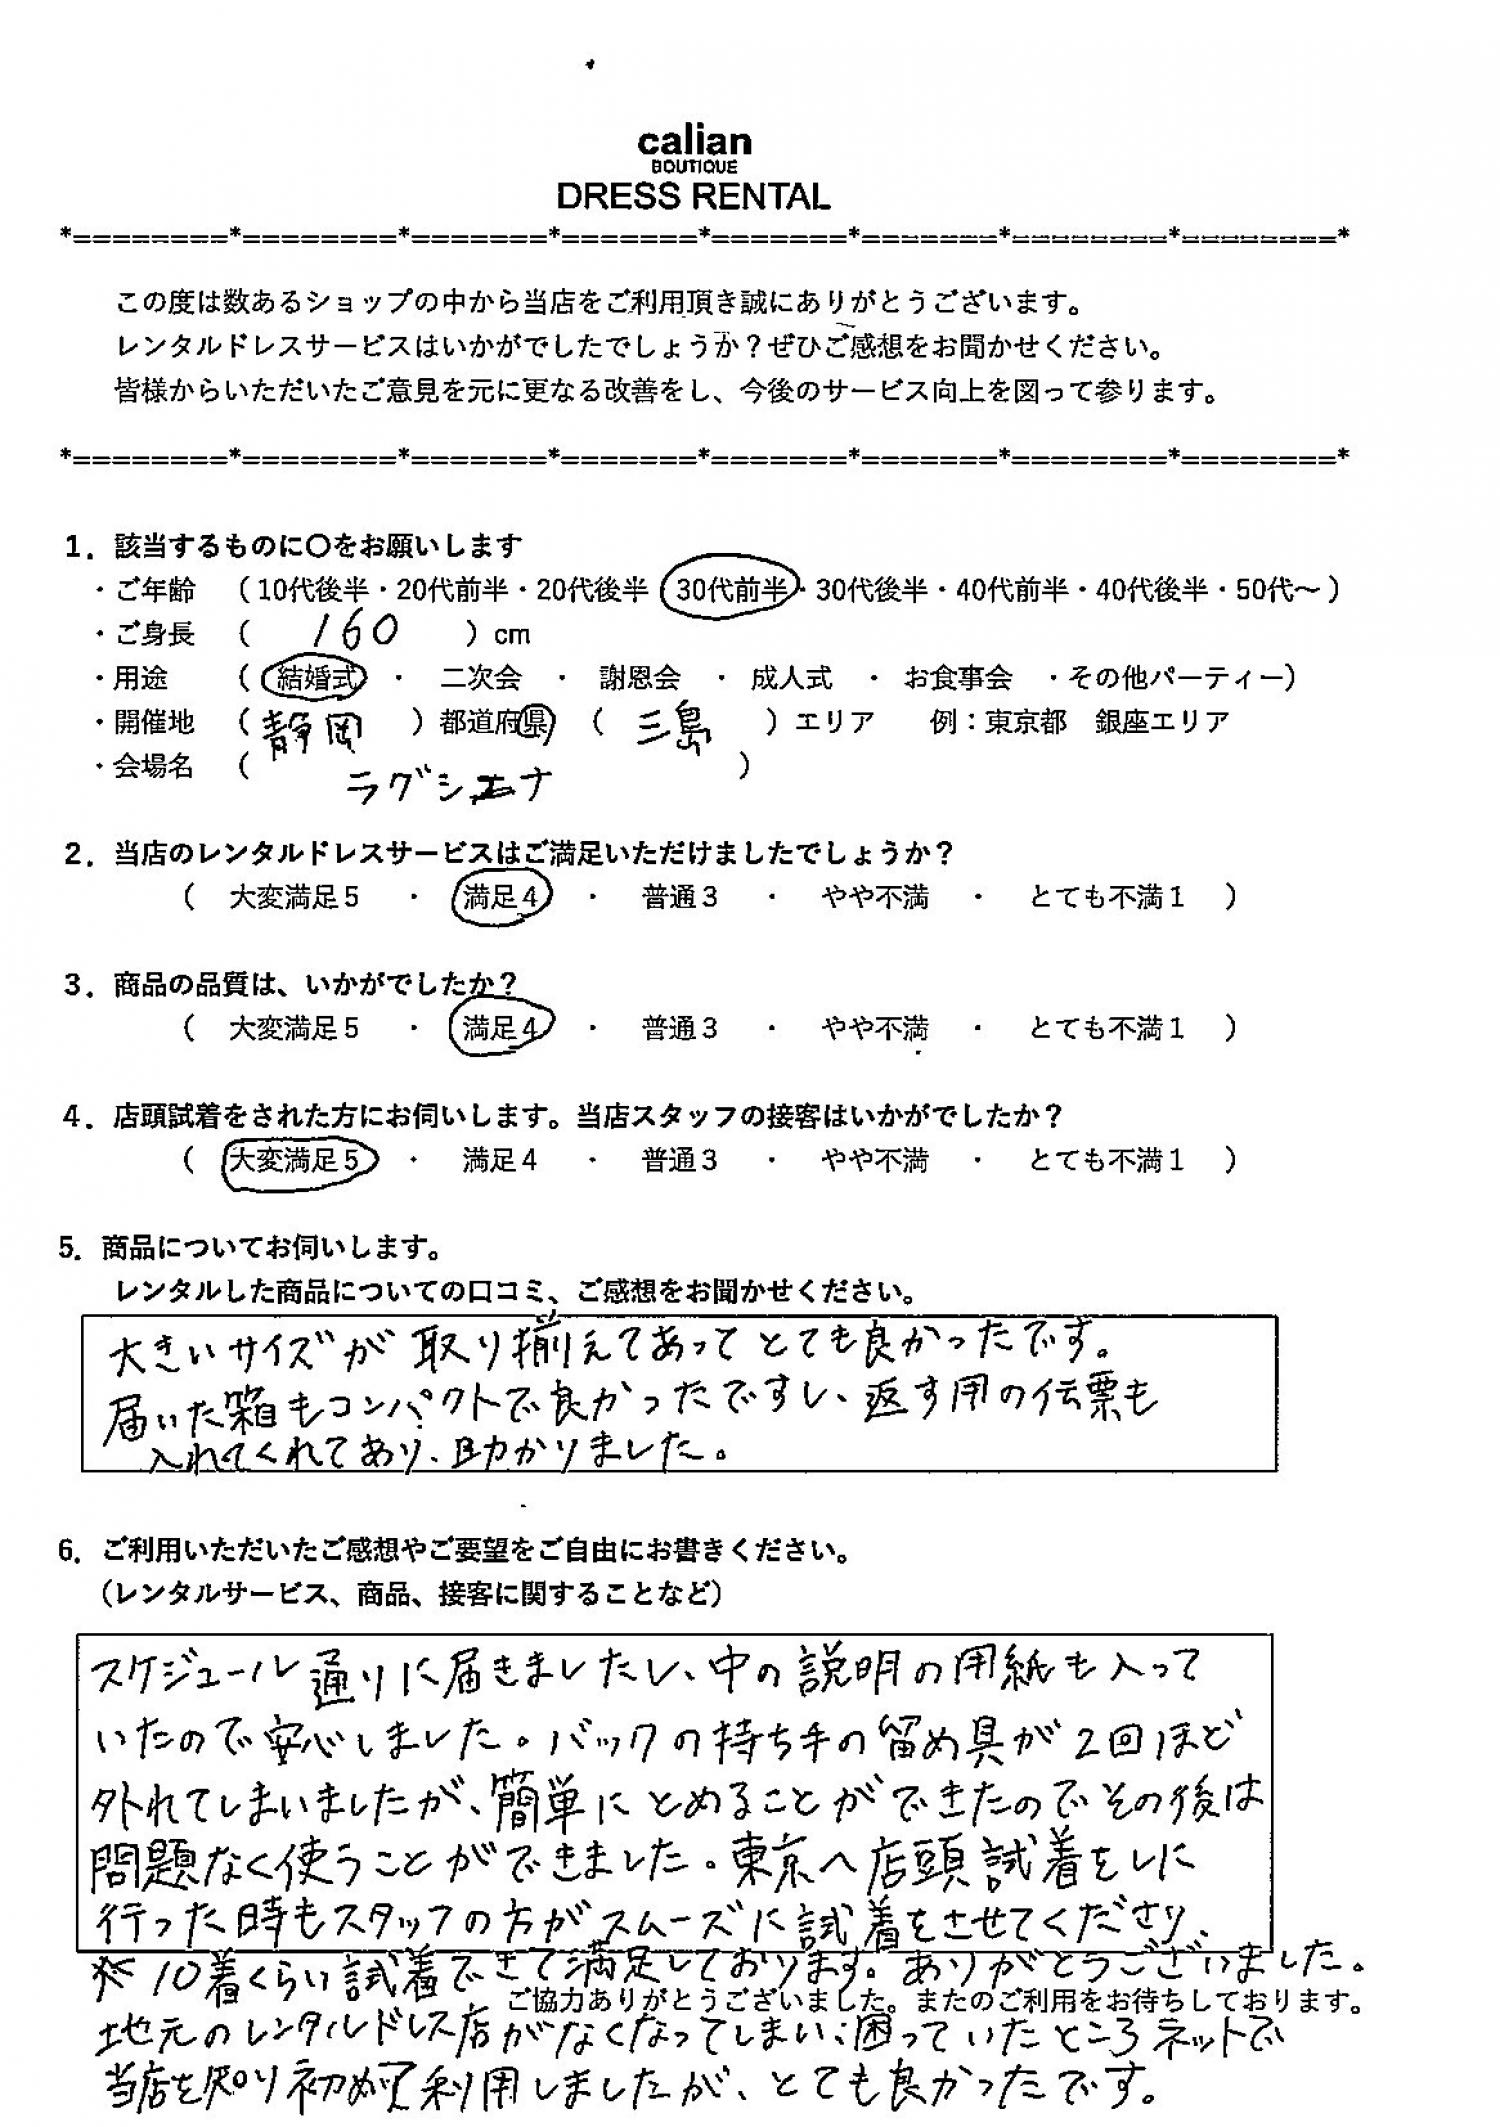 calian
BOUTIQUE
DRESS RENTAL
*========*========*=======*=======*=======*=======*========*========*
この度は数あるショップの中から当店をご利用頂き誠にありがとうございます。
レンタルドレスサービスはいかがでしたでしょうか？ぜひご感想をお聞かせください。
皆様からいただいたご意見を元に更なる改善をし、今後のサービス向上を図って参ります。
*========*========*=======*=======*=======*=======*========*========*
1．該当するものに〇をお願いします
・ご年齢 （10代後半・20代前半・20代後半・30代前半・30代後半・40代前半・40代後半・50代～）
・ご身長 （ 160 ）cm
・用途 （ 結婚式 ・ 二次会 ・ 謝恩会 ・ 成人式 ・ お食事会 ・その他パーティー）
・開催地 （ 静岡 ）都道府県 （ 三島 ）エリア 例：東京都 銀座エリア
・会場名 （ ラグシエナ ）
2．当店のレンタルドレスサービスはご満足いただけましたでしょうか？
（ 大変満足５ ・ 満足４ ・ 普通３ ・ やや不満 ・ とても不満１ ）
3．商品の品質は、いかがでしたか？
（ 大変満足５ ・ 満足４ ・ 普通３ ・ やや不満 ・ とても不満１ ）
4．店頭試着をされた方にお伺いします。当店スタッフの接客はいかがでしたか？
（ 大変満足５ ・ 満足４ ・ 普通３ ・ やや不満 ・ とても不満１ ）
5．商品についてお伺いします。
レンタルした商品についての口コミ、ご感想をお聞かせください。
大きいサイズが取り揃えてあってとても良かったです。
届いた箱もコンパクトで良かったですし、返す用の伝票も
入れてくれてあり、助かりました。
6．ご利用いただいたご感想やご要望をご自由にお書きください。
（レンタルサービス、商品、接客に関することなど）
スケジュール通りに届きましたし、中の説明の用紙も入って
いたので安心しました。バックの持ち手の留め具が2回ほど
外れてしまいましたが、簡単にとめることができたのでその後は
問題なく使うことができました。東京へ店頭試着をしに
行った時もスタッフの方がスムーズに試着をさせてくださり、
10着くらい試着できて満足しております。ありがとうございました。
ご協力ありがとうございました。またのご利用をお待ちしております。
地元のレンタルドレス店がなくなってしまい、困っていたところネットで
当店を知り初めて利用しましたが、とても良かったです。